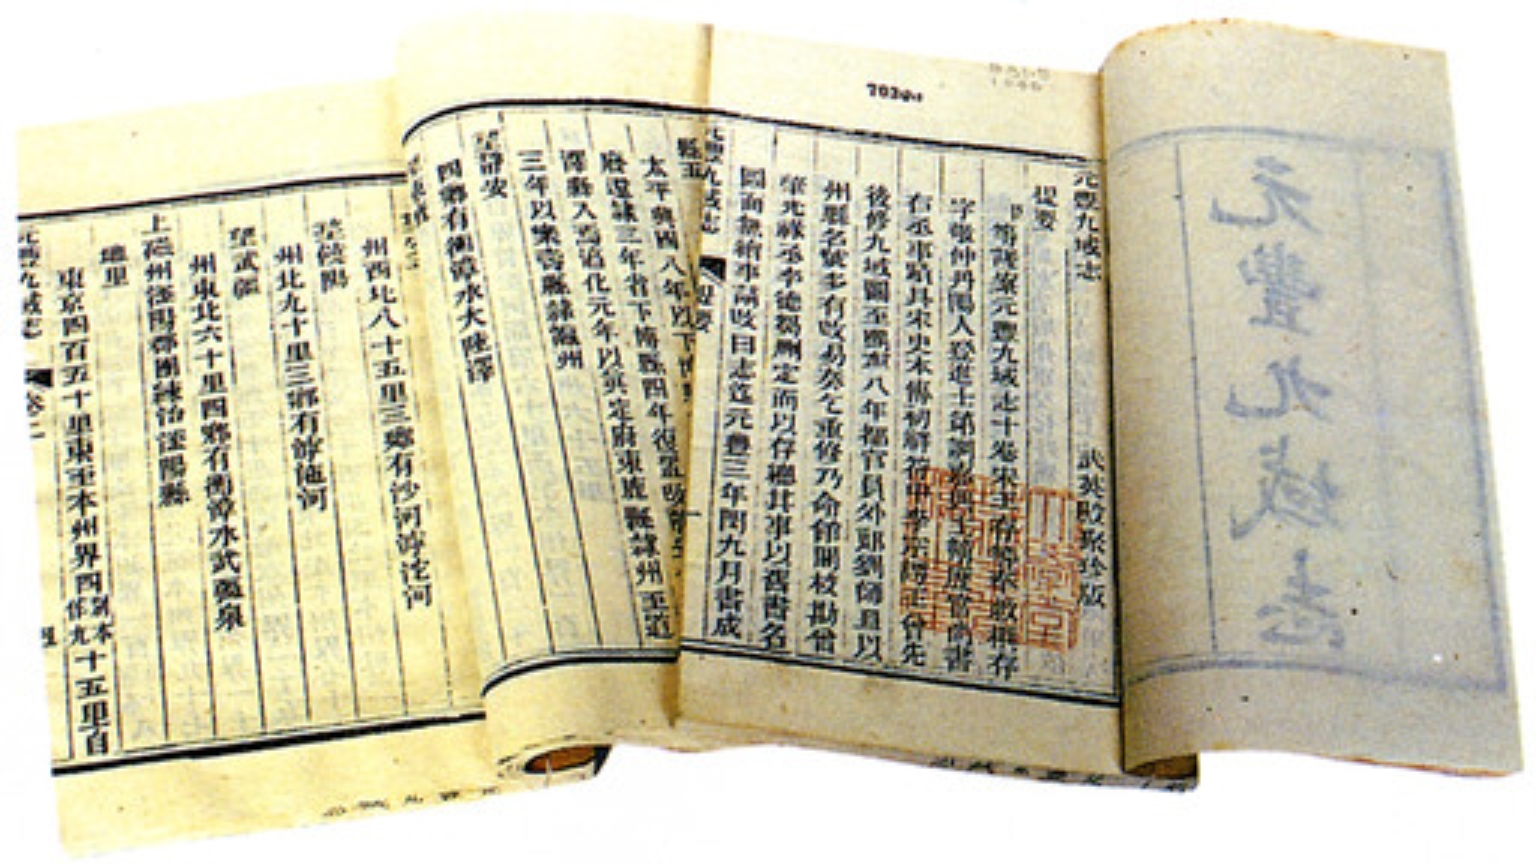 元豐九域志
元豐九域志 武英殿聚珍版
提要
等謹案元豐九域志十卷宋王存等奉敕撰存
字敬仲丹陽人登進士第調嘉興主簿歷官尚書
右丞事蹟具宋史本傳初祥符中李宗諤王曾先
後修九域圖至熙寧八年都官員外郎劉師旦以
州縣名號多有改易奏乞重修乃命館閣校勘曾
肇光祿丞李德芻刪定而以存總其事以舊書名
圖而無繪事請改曰志迄元豐三年閏九月書成
元豐九域志 提要
縣五
太平興國八年以下博
三年省下博縣四年復置改
縣入焉淳化元年以真定府束鹿縣隸州至道
三年以樂壽縣隸瀛州
望靜安
四鄉有衡漳水大陸澤
州西北八十五里三鄉有沙河滹沱河
望饒陽
州北九十里三鄉有滹沱河
望武彊
州東北六十里四鄉有衡漳水武彊泉
上磁州滏陽郡團練治滏陽縣
地里
東京四百五十里東至本州界四係九十五里自
元豐九域志 卷二